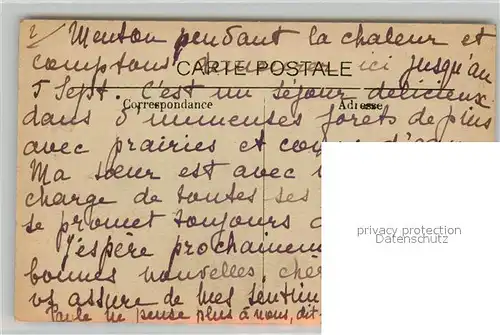 2/ Menton pendant la chaleur et
comptons demeurer ici jusqu'au
CARTE POSTALE
5 Sept. C'est un séjour délicieux
Correspondance Adresse
dans 5 immenses forêts de plus
avec prairies et cours d'eau
Ma sœur est avec
charge de toutes ses
se promet toujours
J'espère prochainement
bonnes nouvelles, chère
vs assure de mes sentim
Paule ne pense plus à nous, dit-
privacy protection
Datenschutz